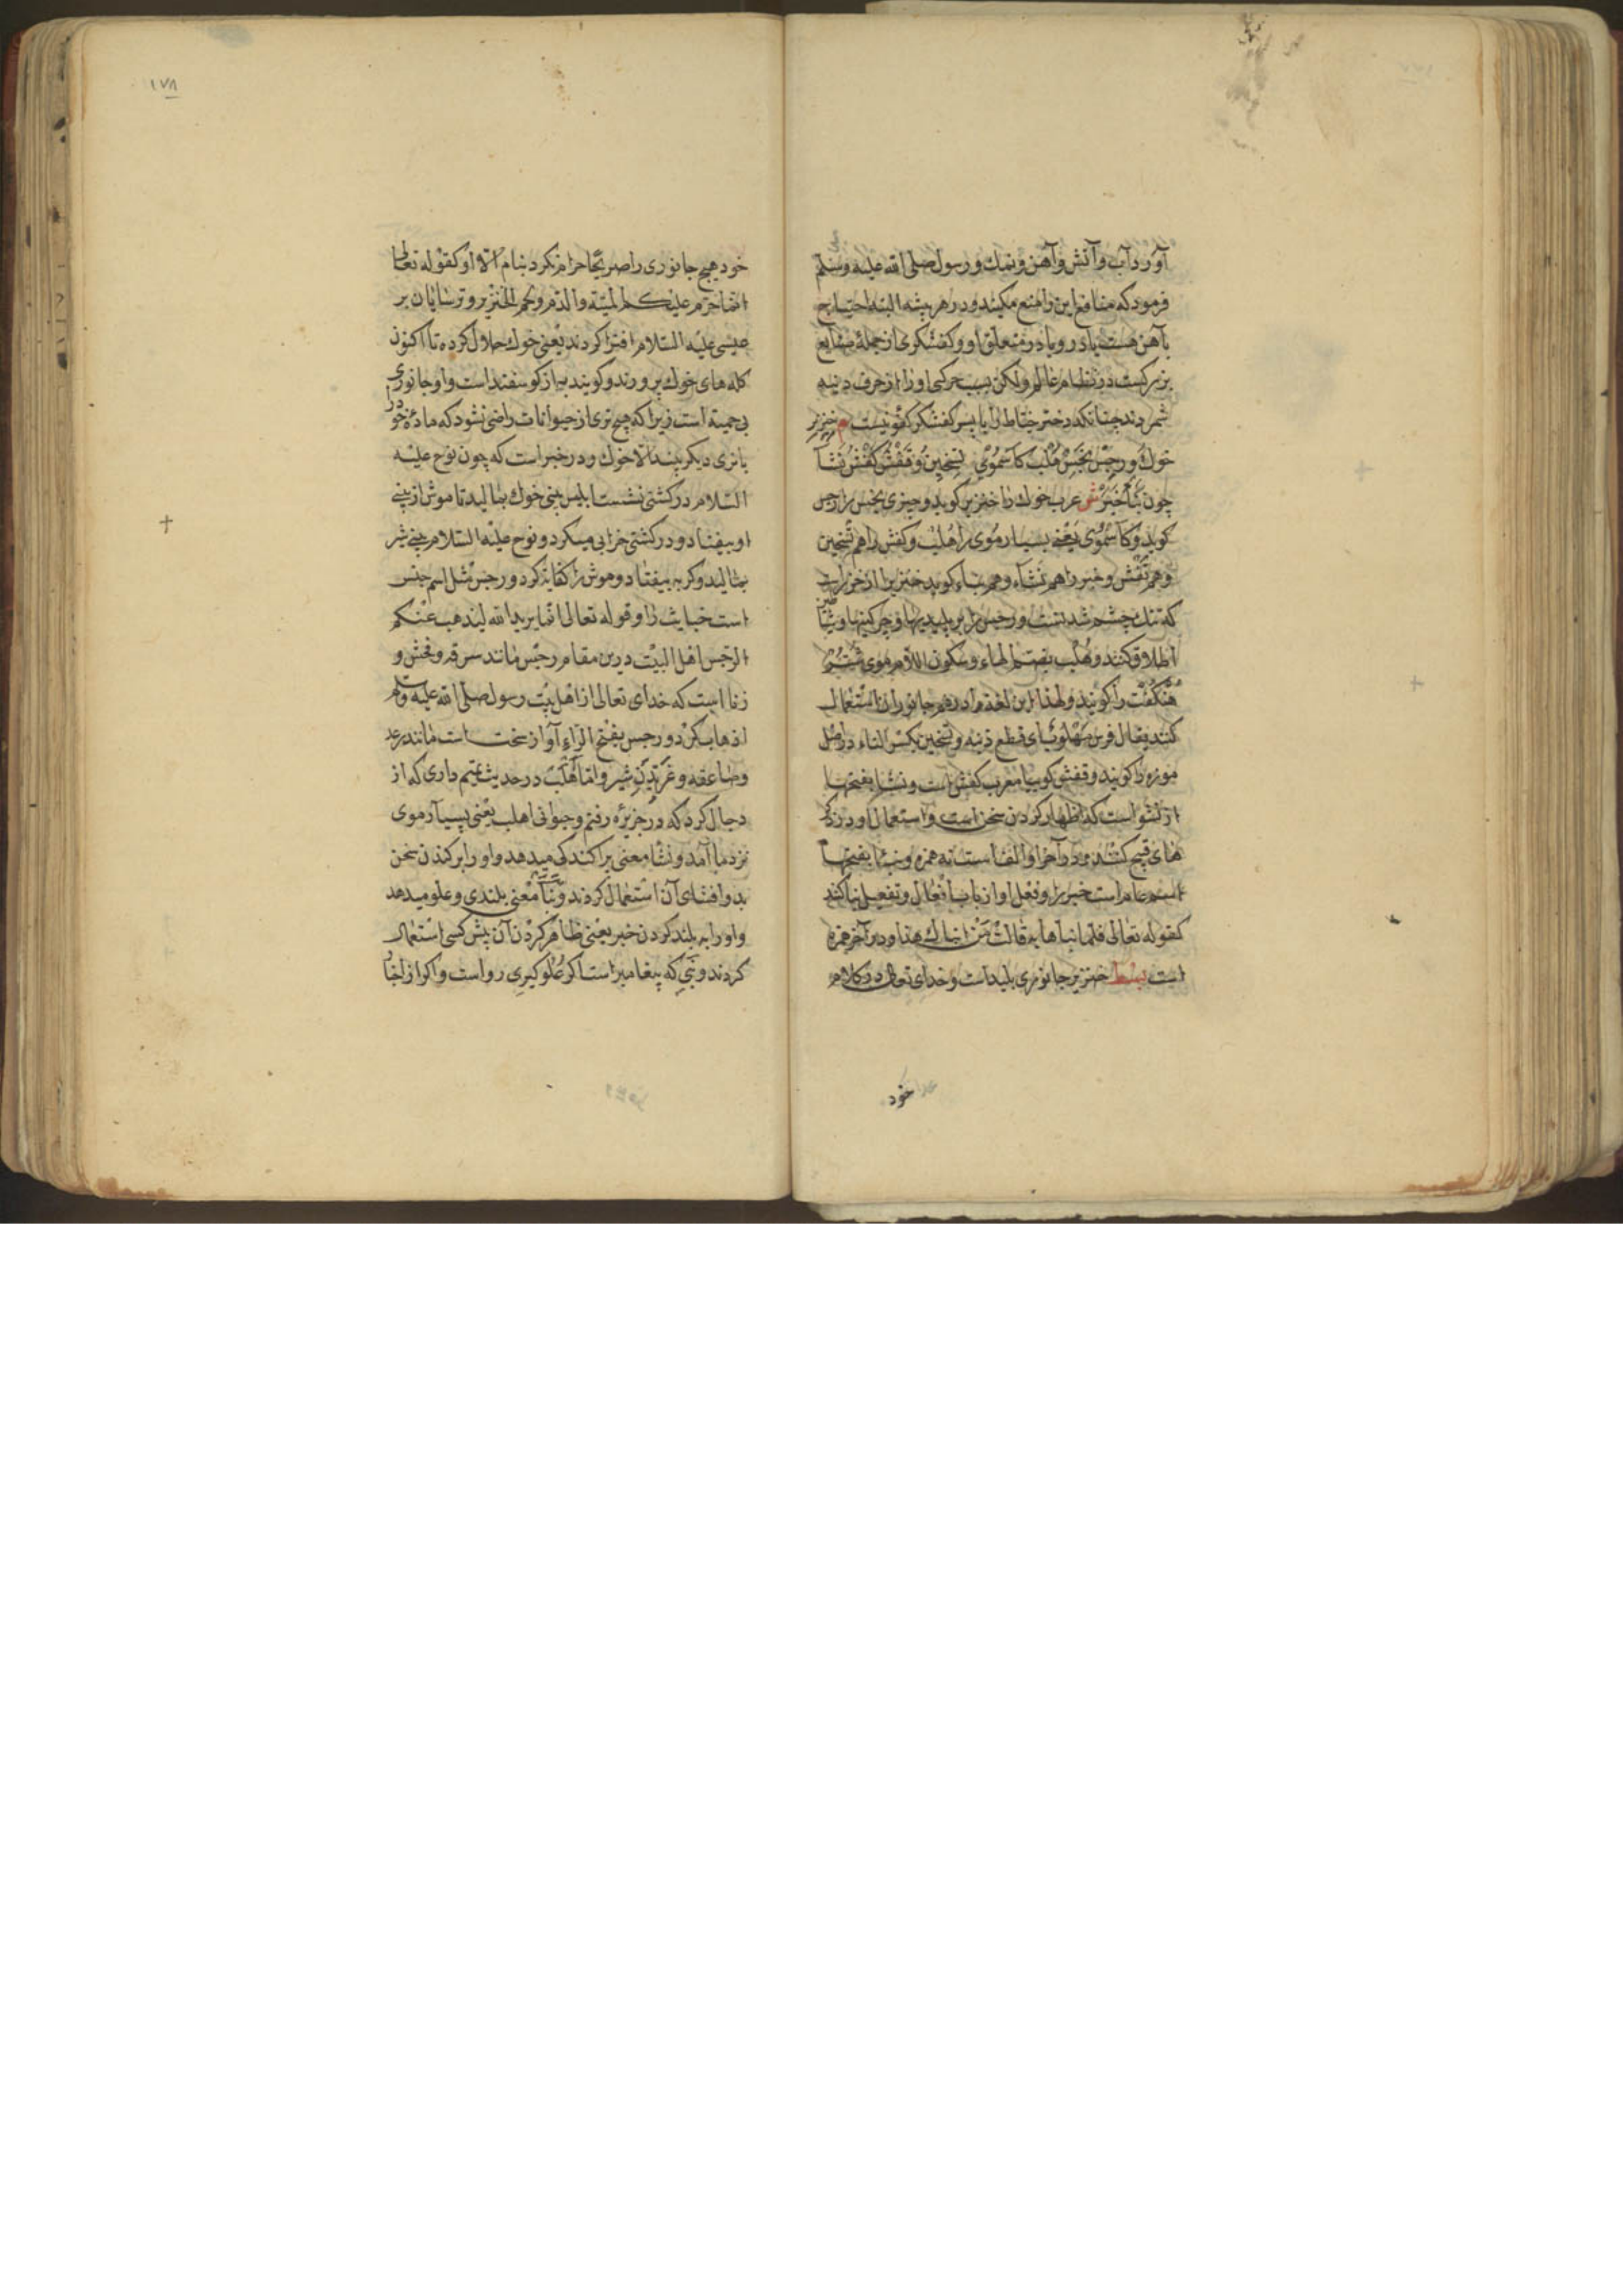 آورد آب و آتش و آهن و نمك و رسول صلی الله علیه وسلم
فرمود که منافع این را منع مکنید و در هر پیشه البته احتیاج
بآهن هست یا درو یا در متعلق او و کفشکری از جملهٔ صنایع
بزرکست در نظام عالم ولکن بسبب حرکی او را از حرف دنیه
شمردند چنانکه دختر خیاط را با پسر کفشکر کفو نیست م خنزیر
خوك و رجس نجس هلب کاسموی تسخین و قفش کفش نثا
چون نبأ خبر ش عرب خوك را خنزیر کوید و چیزی نجس را رجس
کوید و کاسموی یعنی بسیار موی را هلب و کفش را هم تسخین
و هم قفش و خبر را هم نثا و هم نباء کوید خنزیر از خزر است
که تنك چشم شدنست و رجس را بر پلیدیها و چرکینها و شیاطین
اطلاق کنند و هلب بضم الهاء و سکون اللام موی
هنکفت را کویند ولهذا این لغة را در هر جانوران استعمال
کنند یقال فرس مهلوب ای قطع ذنبه و تسخین بکسر التاء در اصل
موزه را کویند و قفش کوییا معرب کفش است و نثا بفتحها
از نثو است که اظهار کردن سخن است و استعمال او در ذکر
های قبیح کنند و در آخر او الف است نه همزه و نبا بفتحها
اسم عام است خبر را و فعل او از باب افعال و تفعیل نیا کند
کقوله تعالی فلما نباها به قالت من انباك هذا و در آخر همزه
است بسط خنزیر جانوری پلید است و خدای تعالی در کلام
خود
۱۷۸
خود هیچ جانوری را صریحا حرام نکرد بنام الا او کقوله تعالی
انما حرم علیکم المیتة والدم ولحم الخنزیر و ترسایان بر
عیسی علیه السلام افترا کردند یعنی خوك حلال کرده تا اکنون
کله های خوك پرورند و کویند به از کوسفند است و او جانوری
بی حمیة است زیرا که هیچ نری از حیوانات راضی نشود که مادهٔ خود را
با نری دیکر بیند الا خوك و در خبر است که چون نوح علیه
السلام در کشتی نشست ابلیس بینی خوك بمالید تا موش از بینی
او بیفتاد و در کشتی خرابی میکرد و نوح علیه السلام بینی شیر
بمالید و کربه بیفتاد و موش را کفایة کرد و رجس مثل اسم جنس
است خبایث را و قوله تعالی انما یرید الله لیذهب عنکم
الرجس اهل البیت درین مقام رجس مانند سرقه و فحش و
زنا است که خدای تعالی از اهل بیت رسول صلی الله علیه وسلم
اذهاب کرد و رجس بفتح الراء آواز سخت است مانند رعد
و صاعقه و غریدن شیر و اما اهلب در حدیث تمیم داری که از
دجال کرد که در جزیره رفتم و حیوانی اهلب یعنی بسیار موی
نزد ما آمد و نثا معنی پراکندکی میدهد و او را بر کندن سخن
بد و افشای آن استعمال کردند و نبأ معنی بلندی و علو میدهد
و او را به بلند کردن خبر یعنی ظاهر کردن آن پیش کسی استعمال
کردند و نبی که پیغامبر است اکر علو کیری رواست و اکر از انباء